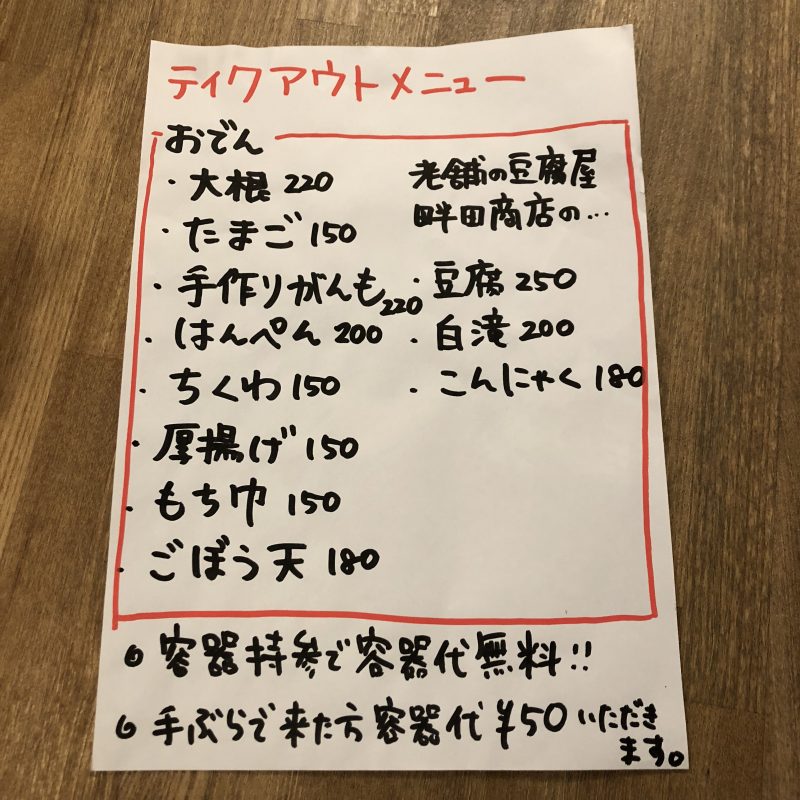 テイクアウトメニュー
おでん
・大根 220
・たまご 150
・手作りがんも 220
・はんぺん 200
・ちくわ 150
・厚揚げ 150
・もち巾 150
・ごぼう天 180
老舗の豆腐屋
畔田商店の…
・豆腐 250
・白滝 200
・こんにゃく 180
●容器持参で容器代無料!!
●手ぶらで来た方容器代¥50いただき
ます。